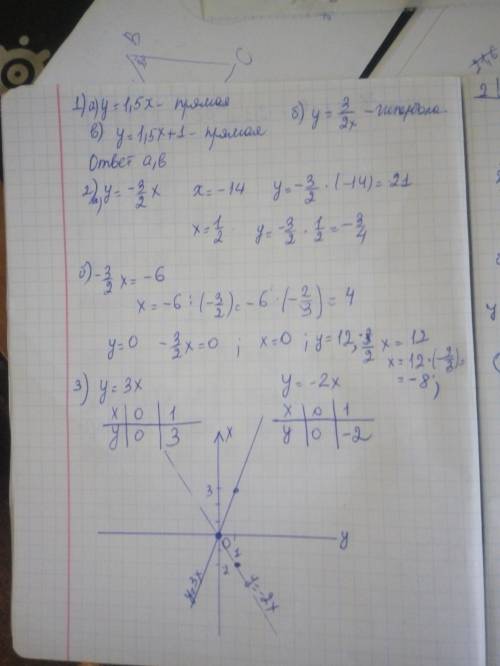 1) а) y = 1,5x - прямая
б) y = 3/2x - гипербола
в) y = 1,5x + 1 - прямая
Ответ а, в
2) а) y = -3/2 x x = -14 y = -3/2 · (-14) = 21
x = 1/2 y = -3/2 · 1/2 = -3/4
б) -3/2 x = -6
x = -6 : (-3/2) = -6 · (-2/3) = 4
y = 0 -3/2 x = 0 ; x = 0 ; y = 12, -3/2 x = 12
x = 12 · (-2/3) =
= -8;
3) y = 3x
x 0 1
y 0 3
y = -2x
x 0 1
y 0 -2
x
3
0 1
y
2
y = 3x
y = -2x